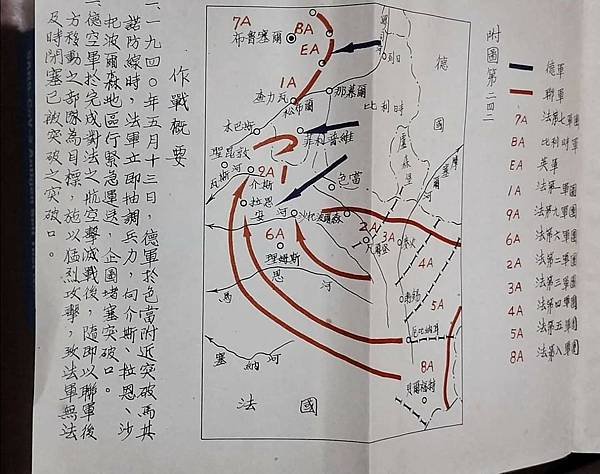 附圖第二四二
德軍
聯軍
7A 法第七軍團
BA 比利時軍
EA 英軍
1A 法第一軍團
9A 法第九軍團
6A 法第六軍團
2A 法第二軍團
3A 法第三軍團
4A 法第四軍團
5A 法第五軍團
8A 法第八軍團
7A
BA
布魯塞爾
EA
德
國
1A
查力瓦
松布爾
那慕爾
比利時
木巴斯
菲利普維
聖昆敦
瓦斯河
9A
介斯
色當
盧森堡
拉恩
安
河
沙托波爾森
2A
3A
6A
理姆斯
凡爾登
4A
馬
恩
河
5A
塞
納
河
8A
貝爾福特
法
國
作戰概要
一、一九四○年五月十三日，德軍於色當附近突破馬其
諾防線時，法軍立即抽調兵力，向介斯、拉恩、沙
托波爾森地區行緊急運送，企圖堵塞突破口。
一、德空軍於完成對法之航空擊滅戰後，隨即以聯軍後
方移動之部隊為目標，施以猛烈攻擊，致法軍無法
及時閉塞已被突破之突破口。